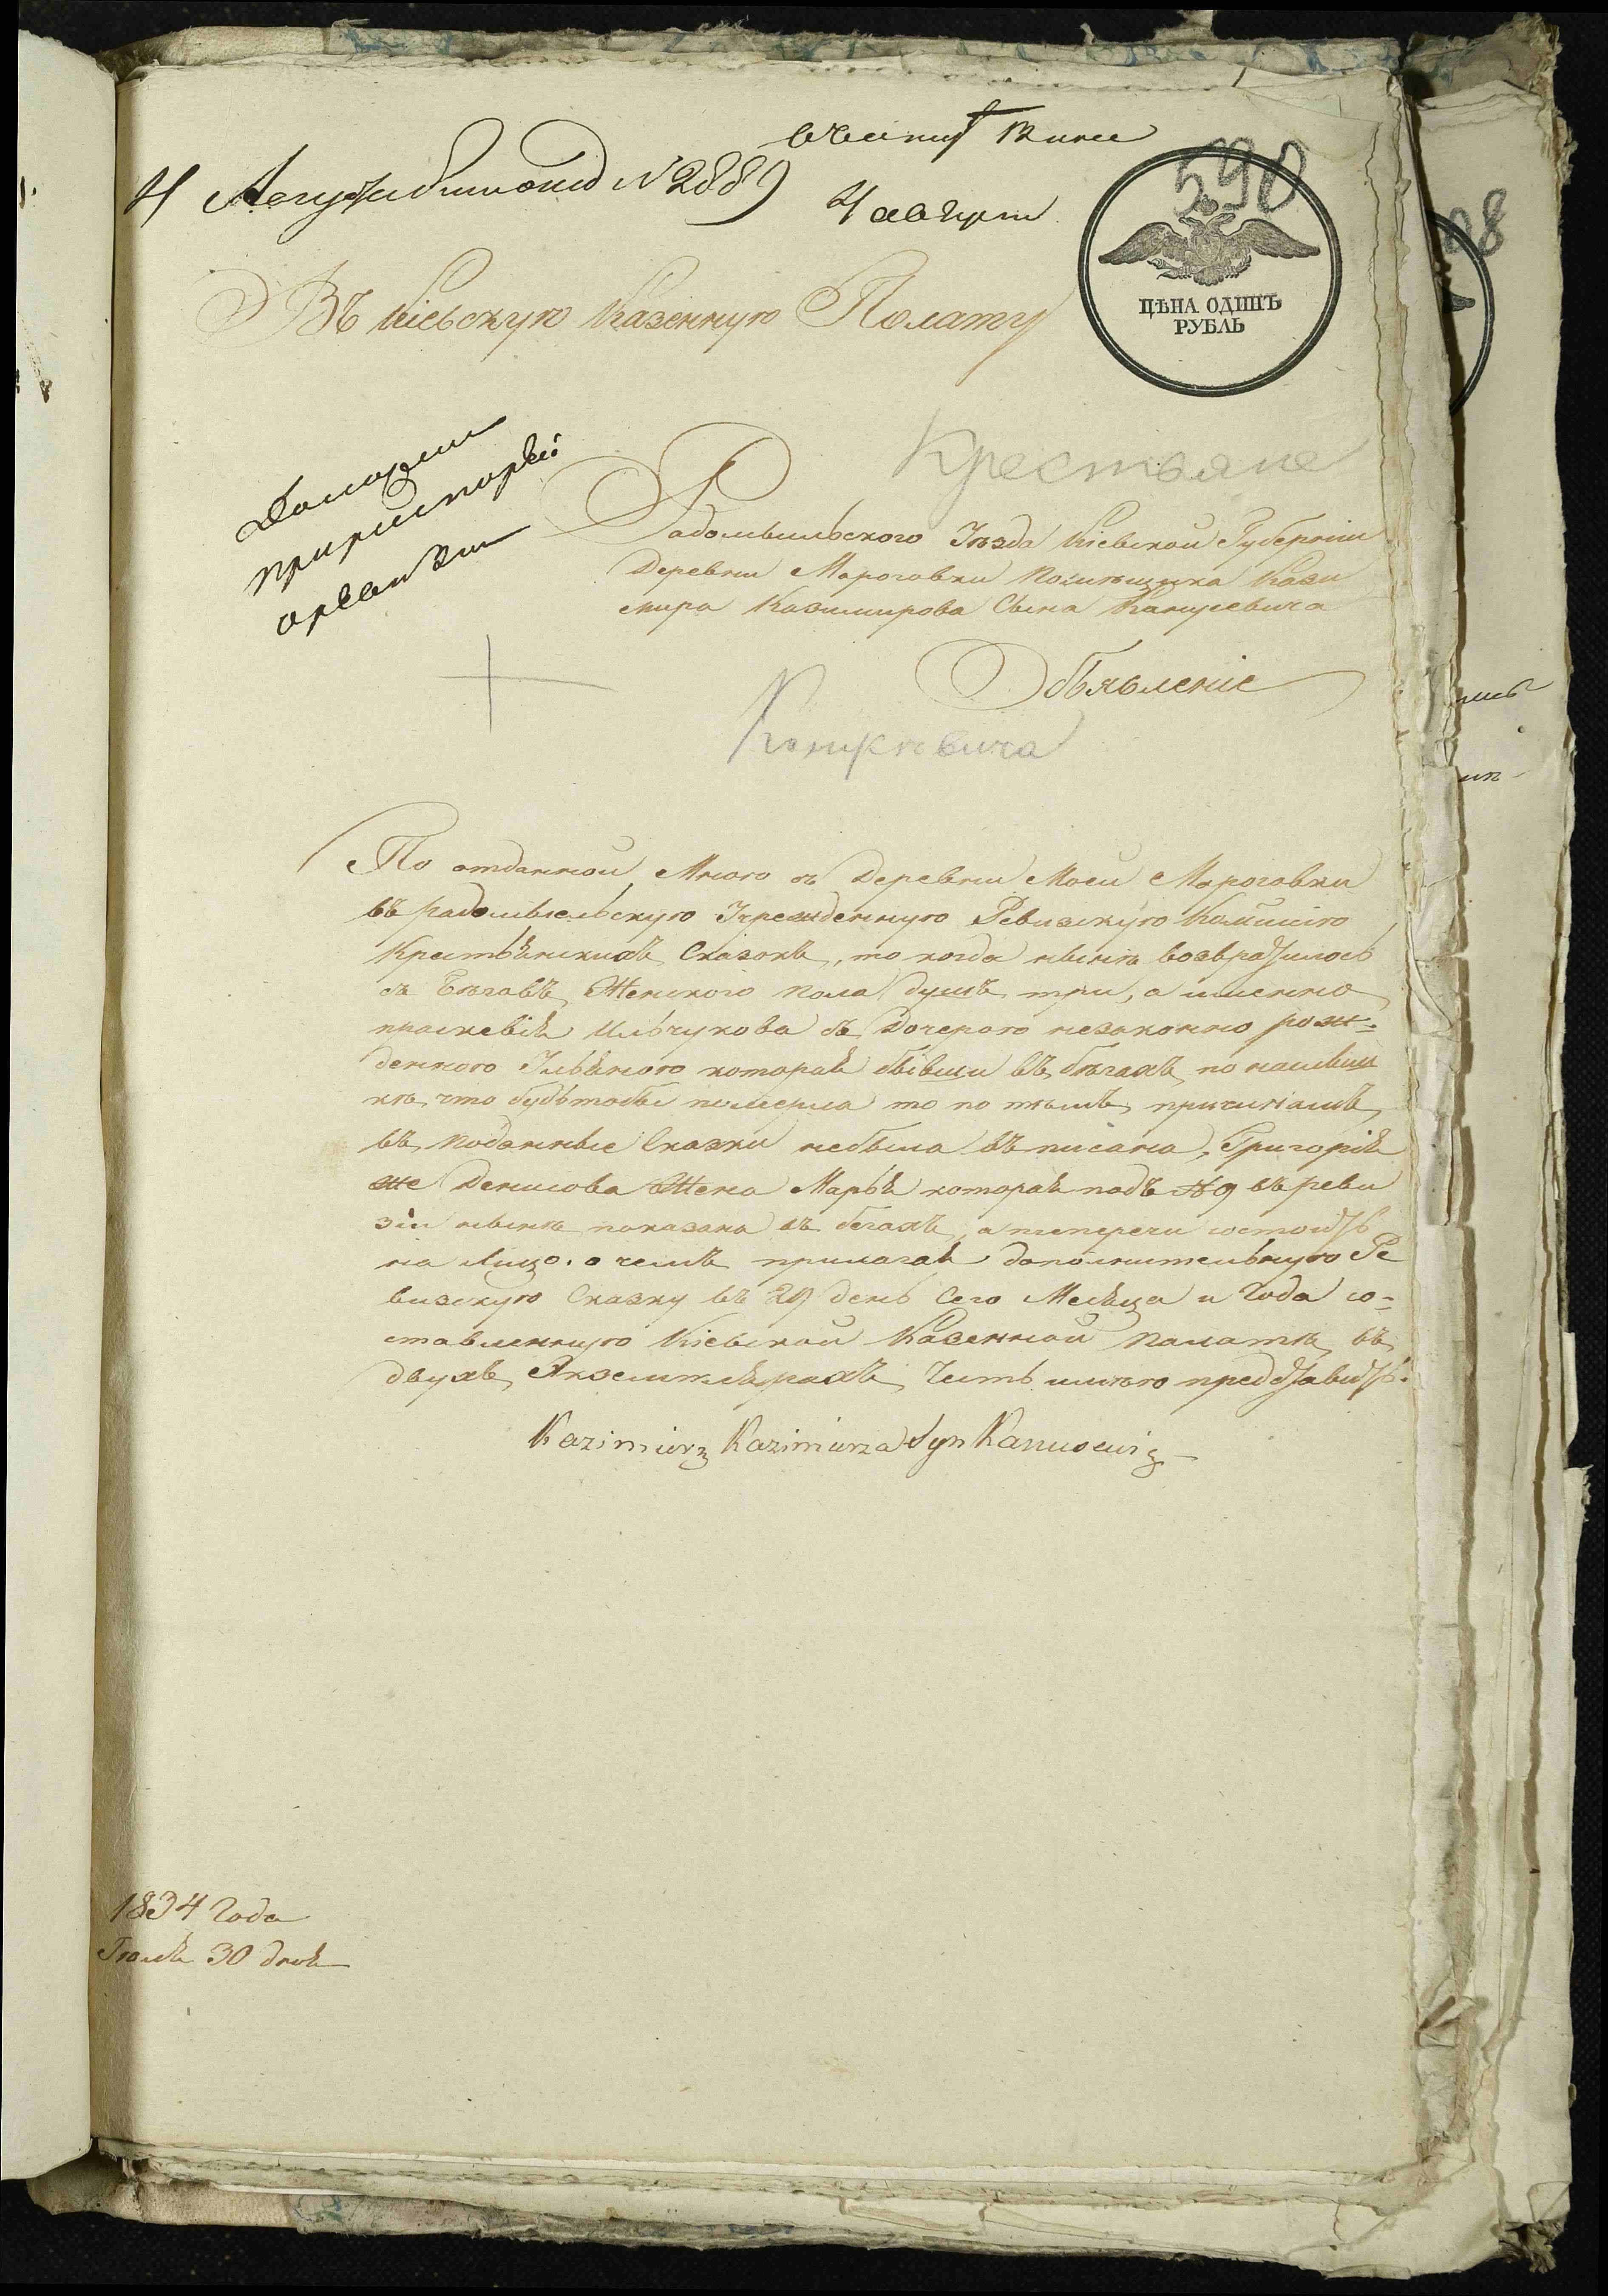 4 Августа №2889
4 август
590
ЦѢНА ОДИНЪ
РУБЛЬ
Въ Кіевскую Казенную Полату
Крестьяне
Радомысльского Уѣзда Кіевской Губерніи
Деревни Мороговки Помѣщика Кази
мира Казимирова Сына Канцевича
Объявленіе
По отданной Мною съ Деревни Моей Мороговки
въ радомысльскую Учрежденную Ревизскую Комисію
Крестьянскихъ Сказокъ, то когда нынѣ возвратилось
съ Бѣговъ Женского пола душъ три, а именно
Ильчукова съ Дочерою незаконно рож-
денною Ульяною которая бывши въ бѣгахъ по
что будьтобы померла то по тѣмъ причинамъ
въ поданные Сказки небыла въписана, Григорія
же Денисова Жена Марья которая подъ №9 въ реви
зіи нынѣ показана въ бегахъ, а теперечи состоитъ
на лицо. о чемъ прилагая дополнительную Ре
визскую Сказку въ 29 день Сего Месяца и Года со-
ставленную Кіевской Казенной палатѣ въ
двухъ Экземплярахъ Честь имѣю представить.
Kazimierz Kazimierza Syn
1834 Года
Іюля 30 дня